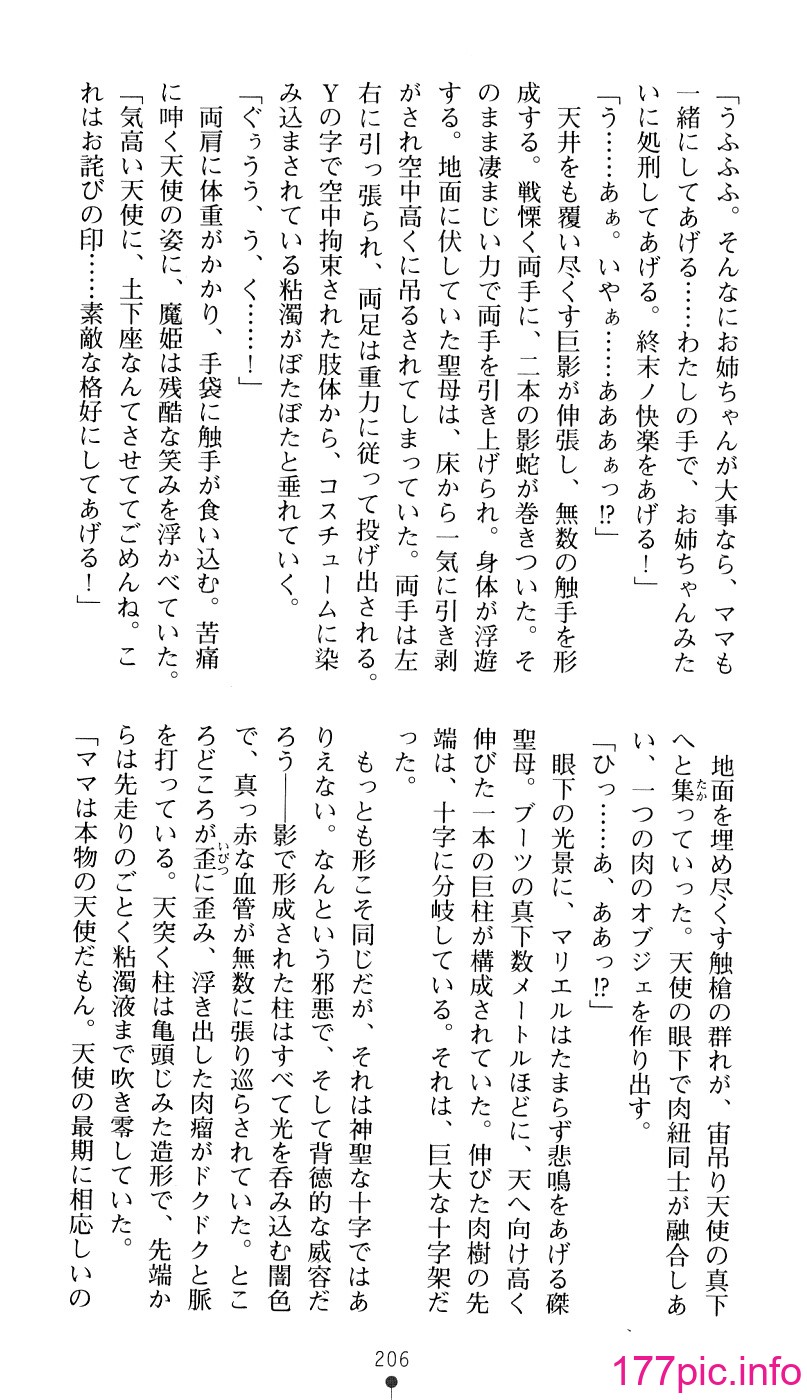 「うふふふ。そんなにお姉ちゃんが大事なら、ママも
一緒にしてあげる……わたしの手で、お姉ちゃんみた
いに処刑してあげる。終末ノ快楽をあげる！」
「う……あぁ。いやぁ……あああぁっ!?」
　天井をも覆い尽くす巨影が伸張し、無数の触手を形
成する。戦慄く両手に、二本の影蛇が巻きついた。そ
のまま凄まじい力で両手を引き上げられ。身体が浮遊
する。地面に伏していた聖母は、床から一気に引き剥
がされ空中高くに吊るされてしまっていた。両手は左
右に引っ張られ、両足は重力に従って投げ出される。
Ｙの字で空中拘束された肢体から、コスチュームに染
み込まされている粘濁がぼたぼたと垂れていく。
「ぐぅうう、う、く……！」
　両肩に体重がかかり、手袋に触手が食い込む。苦痛
に呻く天使の姿に、魔姫は残酷な笑みを浮かべていた。
「気高い天使に、土下座なんてさせててごめんね。こ
れはお詫びの印……素敵な格好にしてあげる！」
　地面を埋め尽くす触槍の群れが、宙吊り天使の真下
へと集たかっていった。天使の眼下で肉紐同士が融合しあ
い、一つの肉のオブジェを作り出す。
「ひっ……あ、ああっ!?」
　眼下の光景に、マリエルはたまらず悲鳴をあげる磔
聖母。ブーツの真下数メートルほどに、天へ向け高く
伸びた一本の巨柱が構成されていた。伸びた肉樹の先
端は、十字に分岐している。それは、巨大な十字架だ
った。
　もっとも形こそ同じだが、それは神聖な十字ではあ
りえない。なんという邪悪で、そして背徳的な威容だ
ろう――影で形成された柱はすべて光を呑み込む闇色
で、真っ赤な血管が無数に張り巡らされていた。とこ
ろどころが歪いびつに歪み、浮き出した肉瘤がドクドクと脈
を打っている。天突く柱は亀頭じみた造形で、先端か
らは先走りのごとく粘濁液まで吹き零していた。
「ママは本物の天使だもん。天使の最期に相応しいの
206
177pic.info